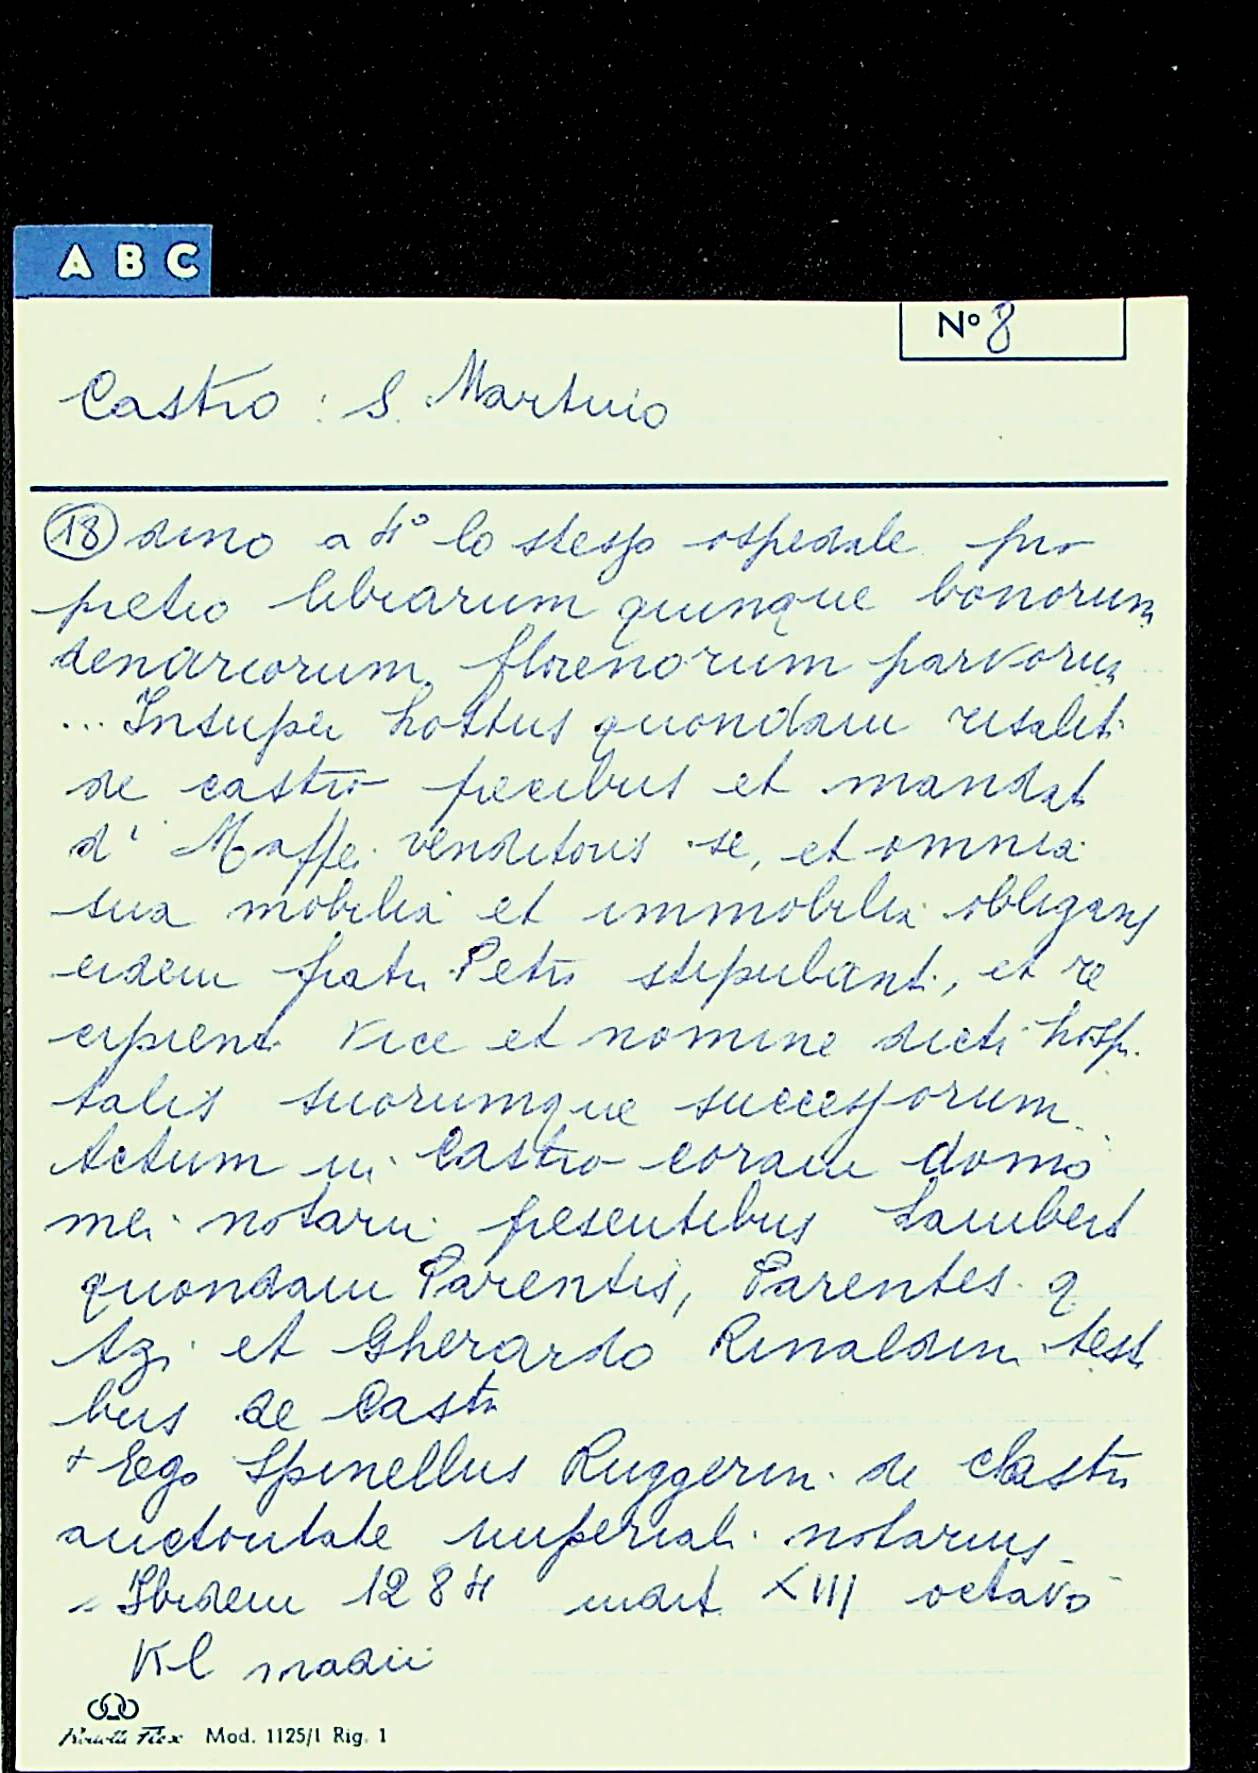 A B C
Nº 8
Castro : S. Martino
18 dino a 4° lo stesso ospedale pro
pretio librarum quinque bonorum
denariorum florenorum parvorum
... Insuper hottus quondam resalit.
de castro precibus et mandat
di Maffei venditoris se, et omnia
sua mobilia et immobilia obligans
eidem fratri Petro stipulant., et re
cipient vice et nomine dicti hospi
talis suorumque successorum.
Actum in Castro coram domo
mei notarii presentibus Lambert
quondam Parentis, Parentes q
Azi et Gherardo Rinaldini test
bus de Castr
+ Ego Spinellus Ruggerini de Castri
auctoritate imperiali notarius
- Ibidem 1284 indit XIII octavo
Kl madii
Mod. 1125/1 Rig. 1